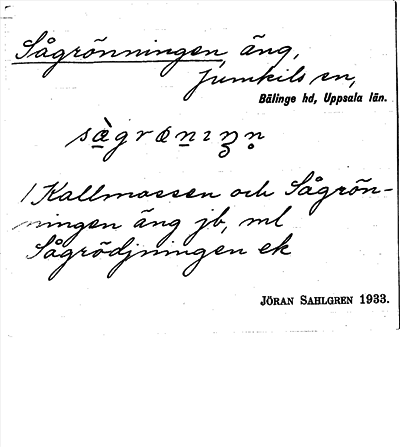 Sågrönningen, äng,
Jumkils sn,
Bälinge hd, Uppsala län.
1 Kallmossen och Sågrön-
ningen äng jb, ml
Sågrödjningen ek
JÖRAN SAHLGREN 1933.